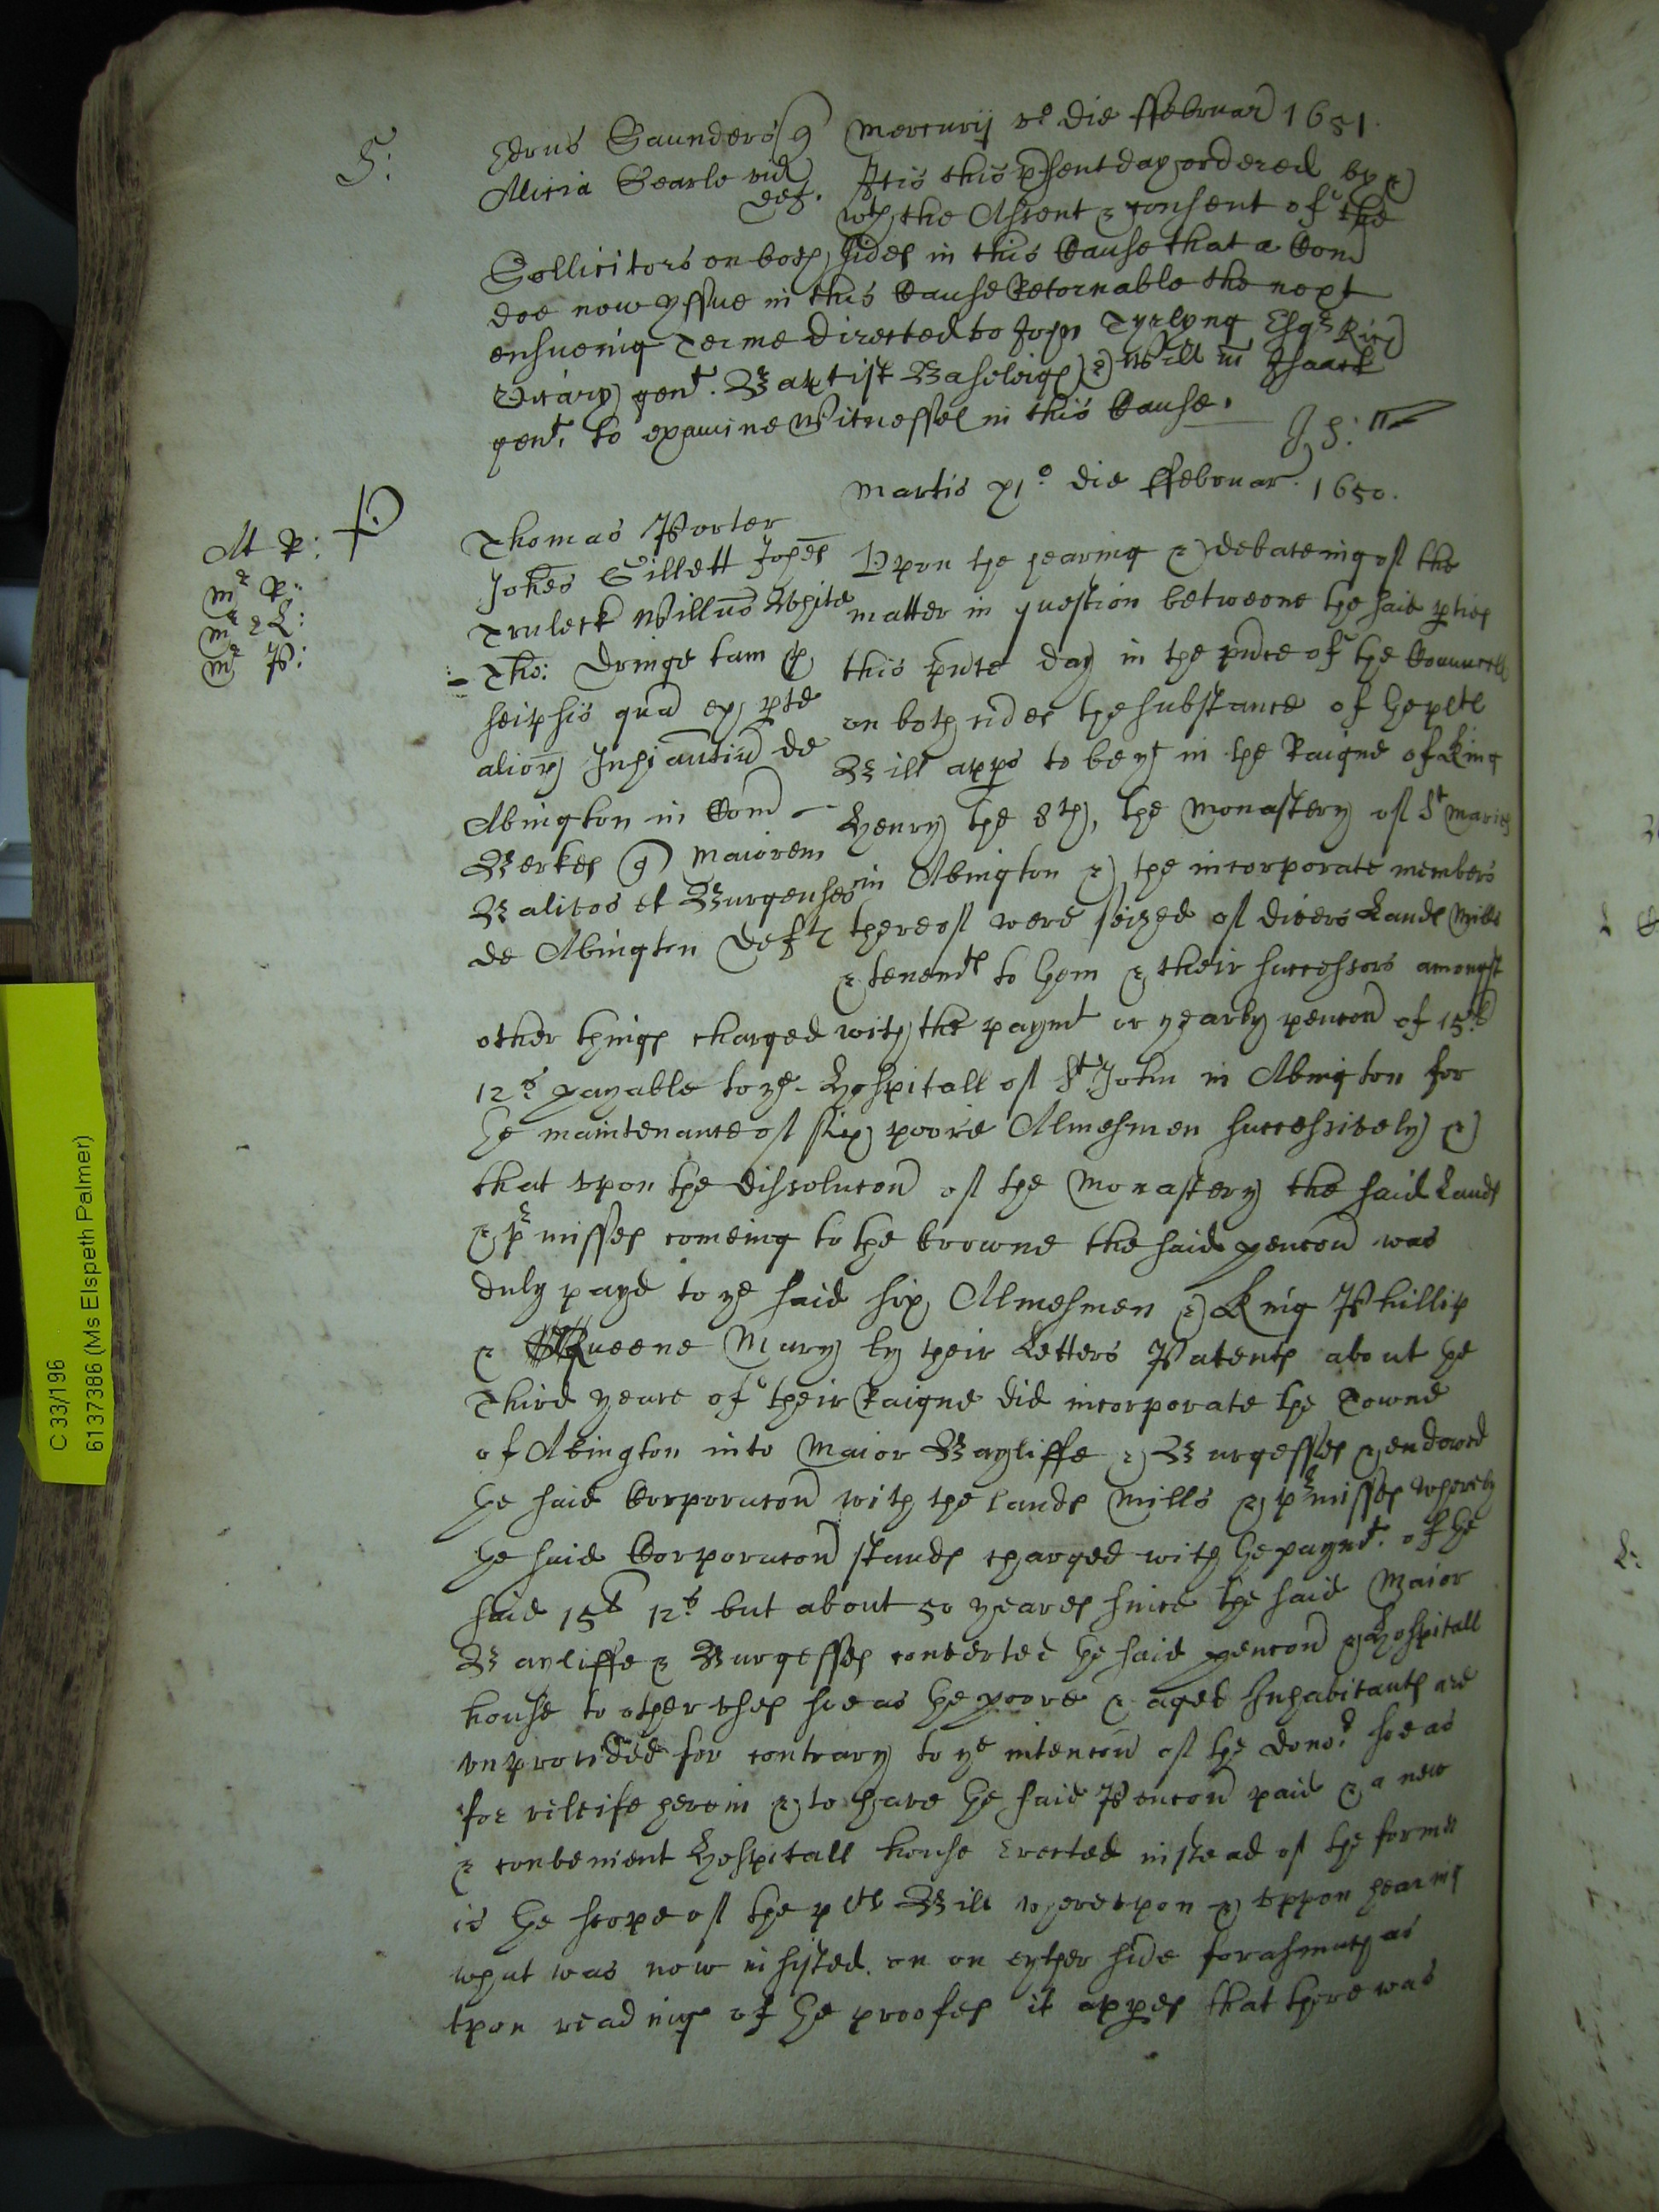 S:
Edrus Saunders q
Mercurij vo die ffebruar 1651.
Alicia Searle vid
def.
It is this psent day ordered by &
wth the Assent & consent of the
Sollicitors on both sides in this Cause that a Com
doe now yssue in this Cause Retornable the next
ensueing Terme directed to John Tyrlyng Esqr Rich
gent. Baptist Baseleigh & Will Isaack
gent. to examine Witnesses in this Cause.
Martis xio die ffebruar. 1650.
P
At R:
mr R:
mr L:
mr P:
Thomas Porter
Johes Gillett Johes
Truleck Willus White
Tho: Dringe tam p
seipsis qua ex pte
alior Inhitantiu de
Abington in Com
Berkes q Maiorem
Balivos et Burgenses
de Abington Deftes
Upon the hearing & debateing of the
matter in question betweene the said pties
this pnte day in the pnce of the Councell
on both sides the substance of the plts
Bill appd to be yt in the Raigne of King
Henry the 8th, the Monastery of St Maries
in Abington & the incorporate members
thereof were seized of divers Lands Mills
& tenemts to them & their successors amongst
other things charged with the paymt or yearly pencon of 15li
12s payable to ye Hospitall of St John in Abington for
the maintenance of six poore Almesmen successively &
that upon the dissolucon of the Monastery the said Lands
& pmisses comeing to the Crowne the said pencon was
duly payd to ye said six Almesmen & King Phillip
& Queene Mary by their Letters Patents about the
Third yeare of their Raigne did incorporate the Towne
of Abington into Maior Bayliffe & Burgesses & endowed
the said Corporacon with the lands Mills & pmisses whereby
the said Corporacon stands charged with the paymt. of the
said 15li 12s but about 50 yeares since the said Maior
Bayliffe & Burgesses converted the said pencon & Hospitall
house to other uses soe as the poore & aged Inhabitants are
unprovided for contrary to ye intencon of the donor soe as
for releife herein & to have the said Pencon paid & a new
& convenient Hospitall house Erected instead of the former
is the scope of the plts Bill whereupon & uppon hearing
what was now insisted on on eyther side forasmuch as
upon reading of the proofes it appes that there was
C 33/196
6137386 (Ms Elspeth Palmer)